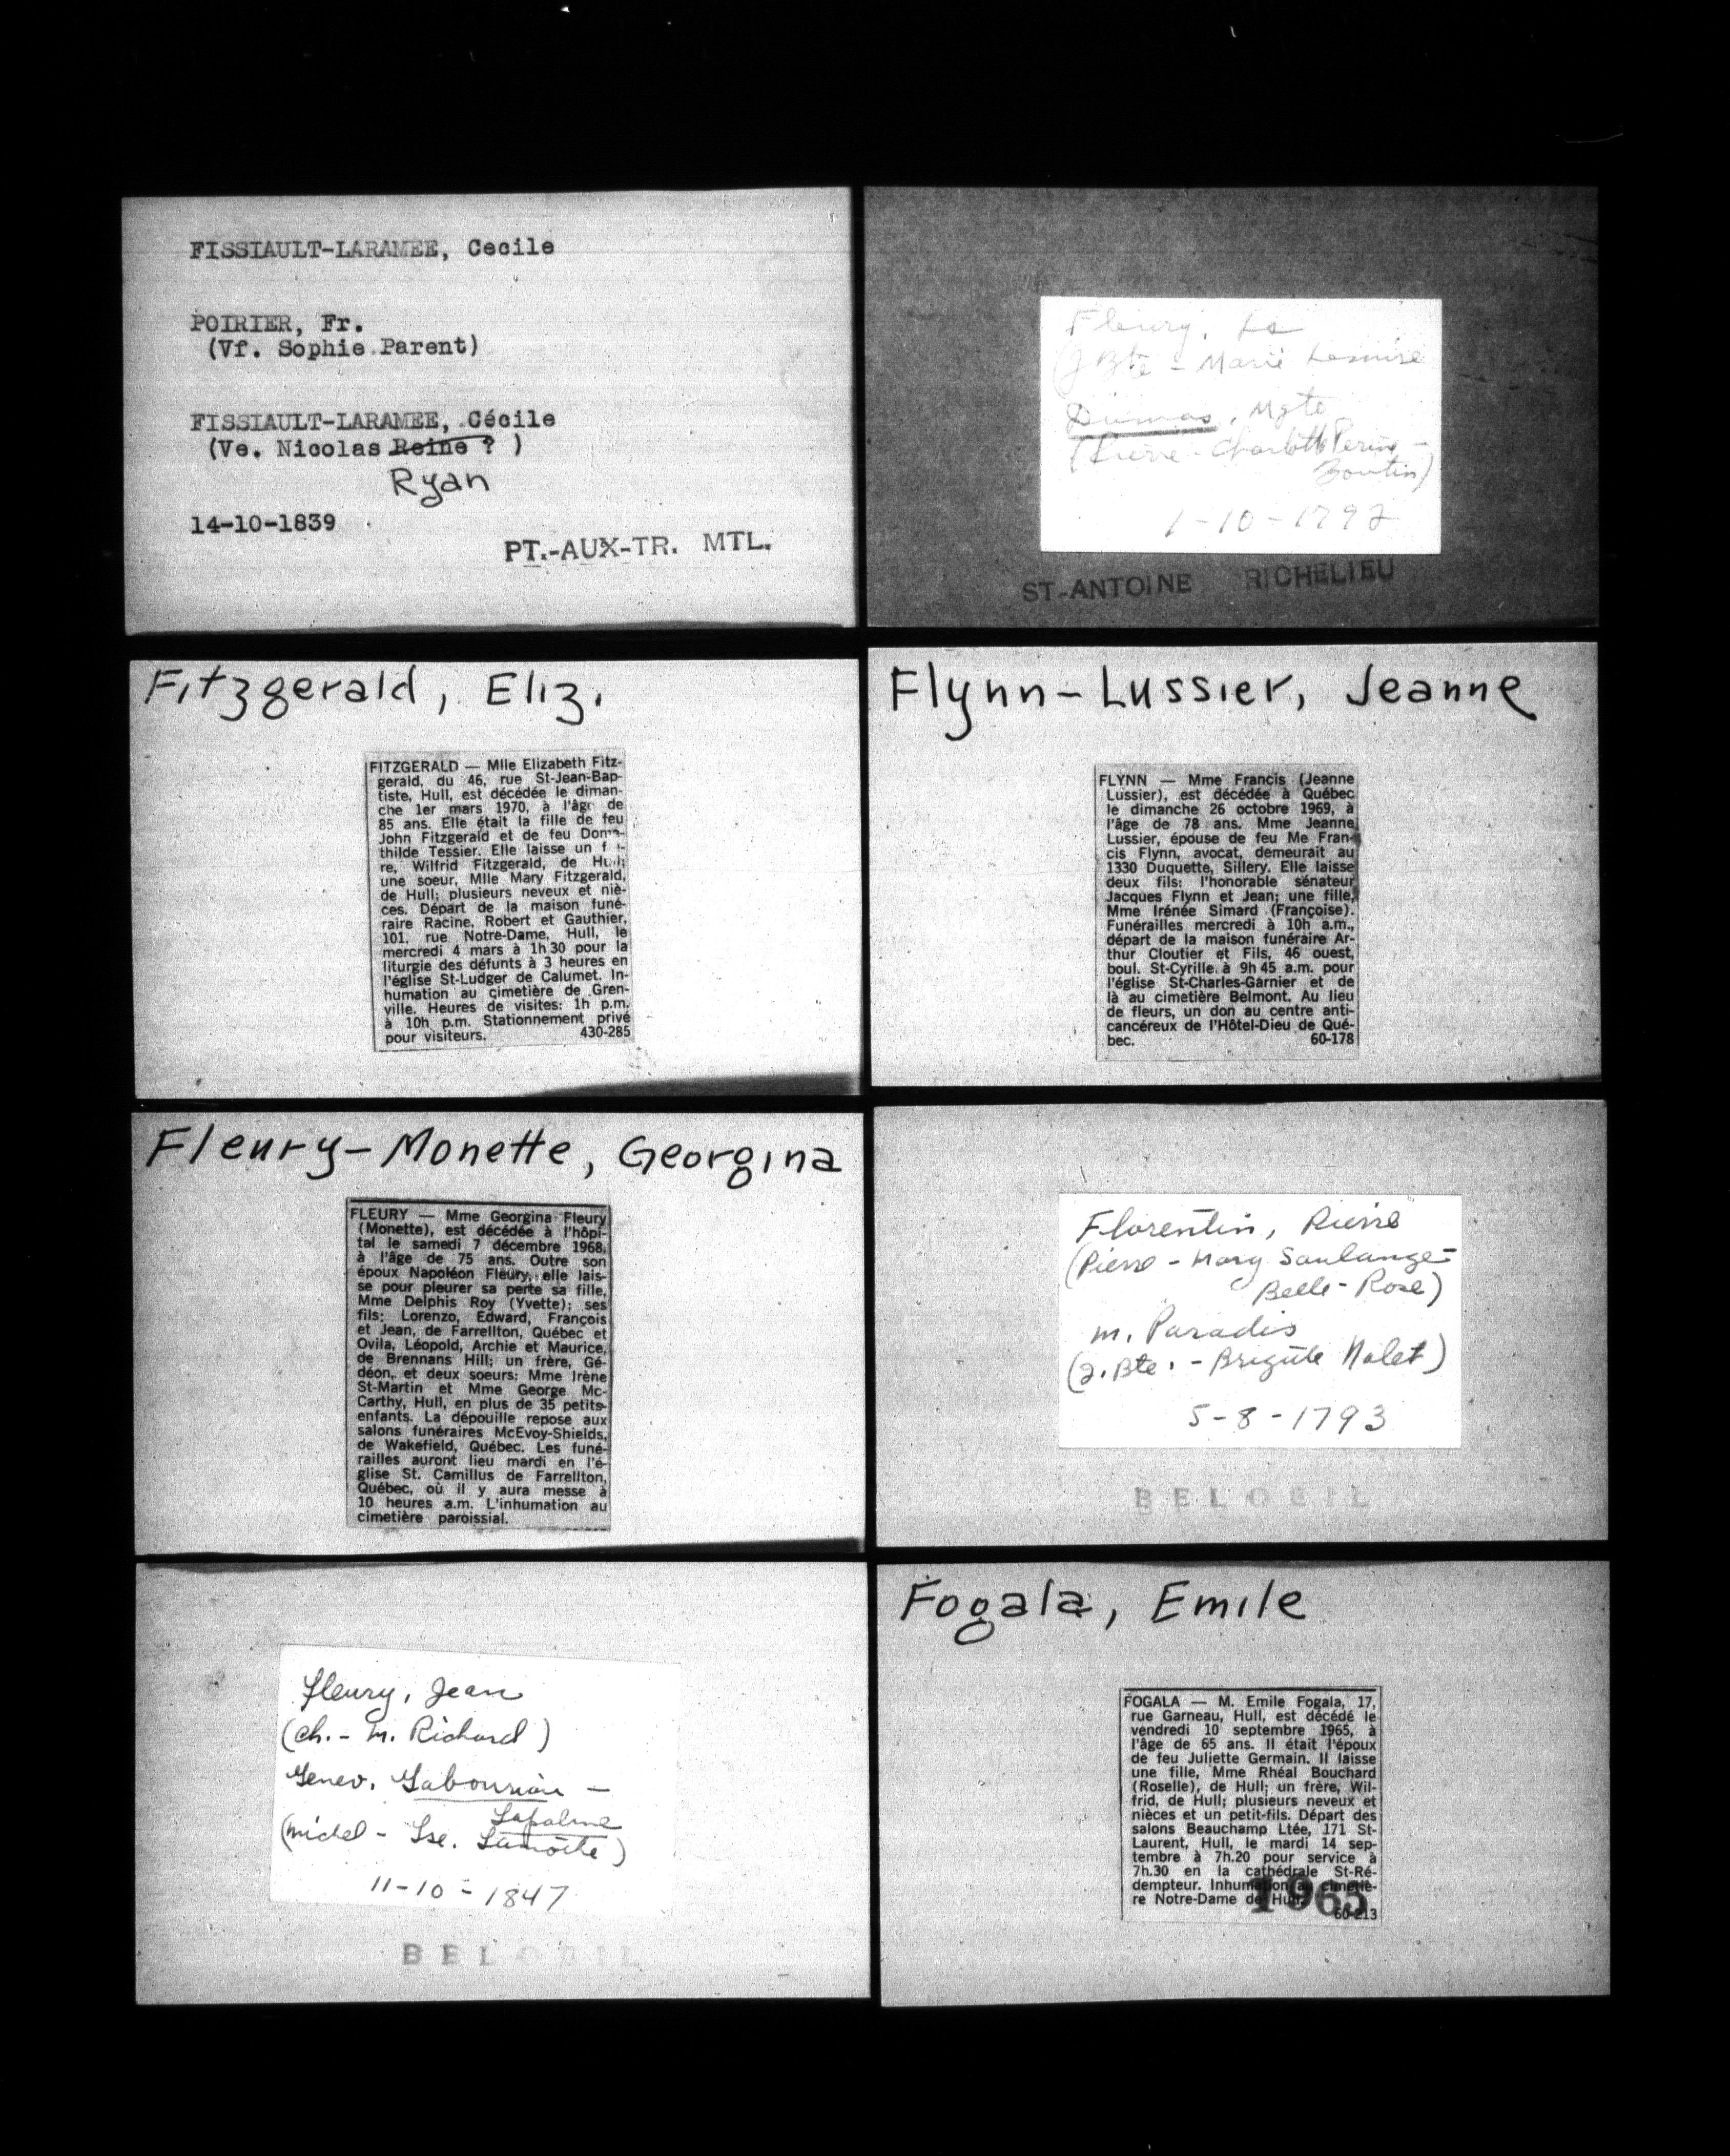 FISSIAULT-LARAMEE, Cecile
POIRIER, Fr.
(Vf. Sophie Parent)
FISSIAULT-LARAMEE, Cécile
(Ve. Nicolas Reine ? )
Ryan
14-10-1839
PT.-AUX-TR. MTL.
Fleury, Ls
(J Bte - Marie
Dumas, Mgte
(Pierre - Charlotte
Boutin)
1-10-1792
ST-ANTOINE RICHELIEU
Fitzgerald, Eliz.
FITZGERALD — Mlle Elizabeth Fitz-
gerald, du 46, rue St-Jean-Bap-
tiste, Hull, est décédée le diman-
che 1er mars 1970, à l'âge de
85 ans. Elle était la fille de feu
John Fitzgerald et de feu Dom-
thilde Tessier. Elle laisse un
re, Wilfrid Fitzgerald, de Hull;
une soeur, Mlle Mary Fitzgerald,
de Hull; plusieurs neveux et niè-
ces. Départ de la maison funé-
raire Racine, Robert et Gauthier,
101, rue Notre-Dame, Hull, le
mercredi 4 mars à 1h 30 pour la
liturgie des défunts à 3 heures en
l'église St-Ludger de Calumet. In-
humation au cimetière de Gren-
ville. Heures de visites: 1h p.m.
à 10h p.m. Stationnement privé
pour visiteurs. 430-285
Flynn-Lussier, Jeanne
FLYNN — Mme Francis (Jeanne
Lussier), est décédée à Québec
le dimanche 26 octobre 1969, à
l'âge de 78 ans. Mme Jeanne
Lussier, épouse de feu Me Fran-
cis Flynn, avocat, demeurait au
1330 Duquette, Sillery. Elle laisse
deux fils: l'honorable sénateur
Jacques Flynn et Jean; une fille,
Mme Irénée Simard (Françoise).
Funérailles mercredi à 10h a.m.,
départ de la maison funéraire Ar-
thur Cloutier et Fils, 46 ouest,
boul. St-Cyrille à 9h 45 a.m. pour
l'église St-Charles-Garnier et de
là au cimetière Belmont. Au lieu
de fleurs, un don au centre anti-
cancéreux de l'Hôtel-Dieu de Qué-
bec. 60-178
Fleury-Monette, Georgina
FLEURY — Mme Georgina Fleury
(Monette), est décédée à l'hôpi-
tal le samedi 7 décembre 1968,
à l'âge de 75 ans. Outre son
époux Napoléon Fleury, elle lais-
se pour pleurer sa perte sa fille,
Mme Delphis Roy (Yvette); ses
fils: Lorenzo, Edward, François
et Jean, de Farrellton, Québec et
Ovila, Léopold, Archie et Maurice,
de Brennans Hill; un frère, Gé-
déon, et deux soeurs: Mme Irène
St-Martin et Mme George Mc-
Carthy, Hull, en plus de 35 petits-
enfants. La dépouille repose aux
salons funéraires McEvoy-Shields,
de Wakefield, Québec. Les funé-
railles auront lieu mardi en l'é-
glise St. Camillus de Farrellton,
Québec, où il y aura messe à
10 heures a.m. L'inhumation au
cimetière paroissial.
Florentin, Pierre
(Pierre - Marg Saulange -
Belle-Rose)
m. Paradis
(J. Bte. - Brigitte Nolet)
5-8-1793
BELOEIL
Fleury, Jean
(Ch. - M. Richard)
Genev. Gaboursiau -
Lapalme
(Michel - Lse. Lamothe)
11-10-1847
BELOEIL
Fogala, Emile
FOGALA — M. Emile Fogala, 17,
rue Garneau, Hull, est décédé le
vendredi 10 septembre 1965, à
l'âge de 65 ans. Il était l'époux
de feu Juliette Germain. Il laisse
une fille, Mme Rhéal Bouchard
(Roselle), de Hull; un frère, Wil-
frid, de Hull; plusieurs neveux et
nièces et un petit-fils. Départ des
salons Beauchamp Ltée, 171 St-
Laurent, Hull, le mardi 14 sep-
tembre à 7h.20 pour service à
7h.30 en la cathédrale St-Ré-
dempteur. Inhumation au cimetiè-
re Notre-Dame de Hull.
60-213
1965